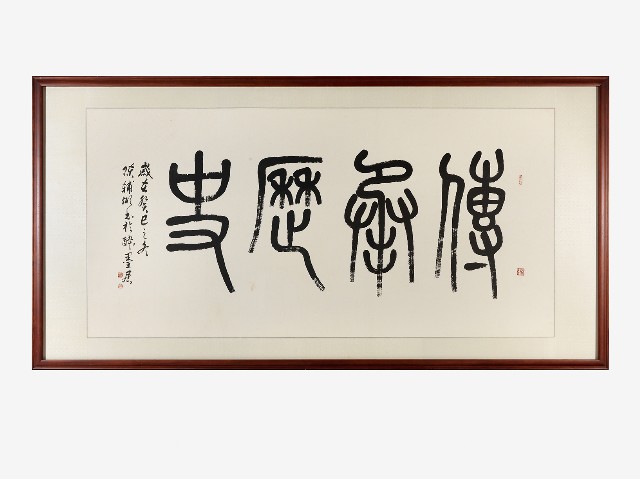 傳承歷史
歲在癸巳之冬
書於醉墨居